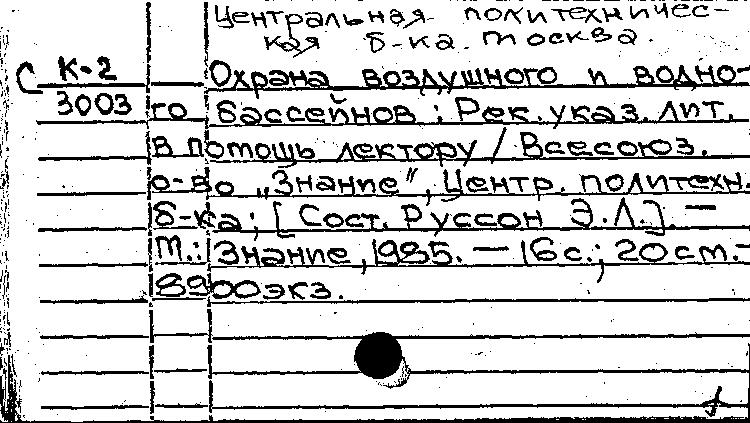 Центральная политехничес-
кая б-ка. Москва.
С К-2
3003
Охрана воздушного и водно-
го бассейнов : Рек. указ. лит.
в помощь лектору / Всесоюз.
о-во „Знание", Центр. политехн.
б-ка; [Сост. Руссон Э.Л.]. —
М.: Знание, 1985. — 16 с.; 20 см. —
8900 экз.